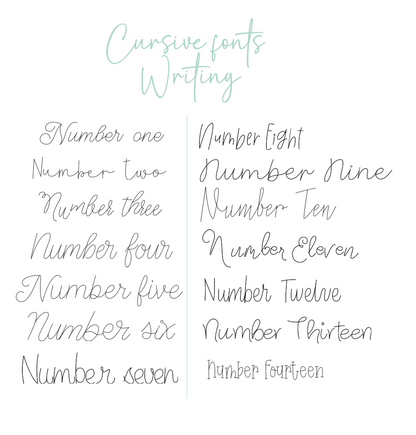 Cursive fonts
Writing
Number one
Number two
Number three
Number four
Number five
Number six
Number seven
Number Eight
Number Nine
Number Ten
Number Eleven
Number Twelve
Number Thirteen
Number Fourteen